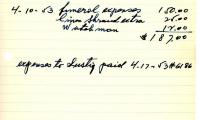 4-10-53 funeral expenses 150.00
Linen Shroud extra 25.00
Watchman 12.00
$187.00
expenses to Lustig paid 4-17-53 #6186